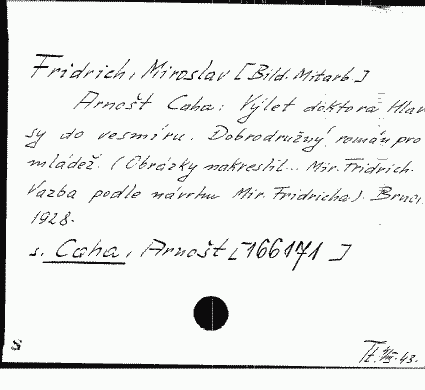 Fridrich, Miroslav [Bild. Mitarb.]
Arnošt Caha: Výlet doktora Hlav
sy do vesmíru. Dobrodružný román pro
mládež. (Obrázky nakreslil... Mir. Fridrich.
Vazba podle návrhu Mir. Fridricha). Brno,
1928.
s. Caha, Arnošt [166171]
S